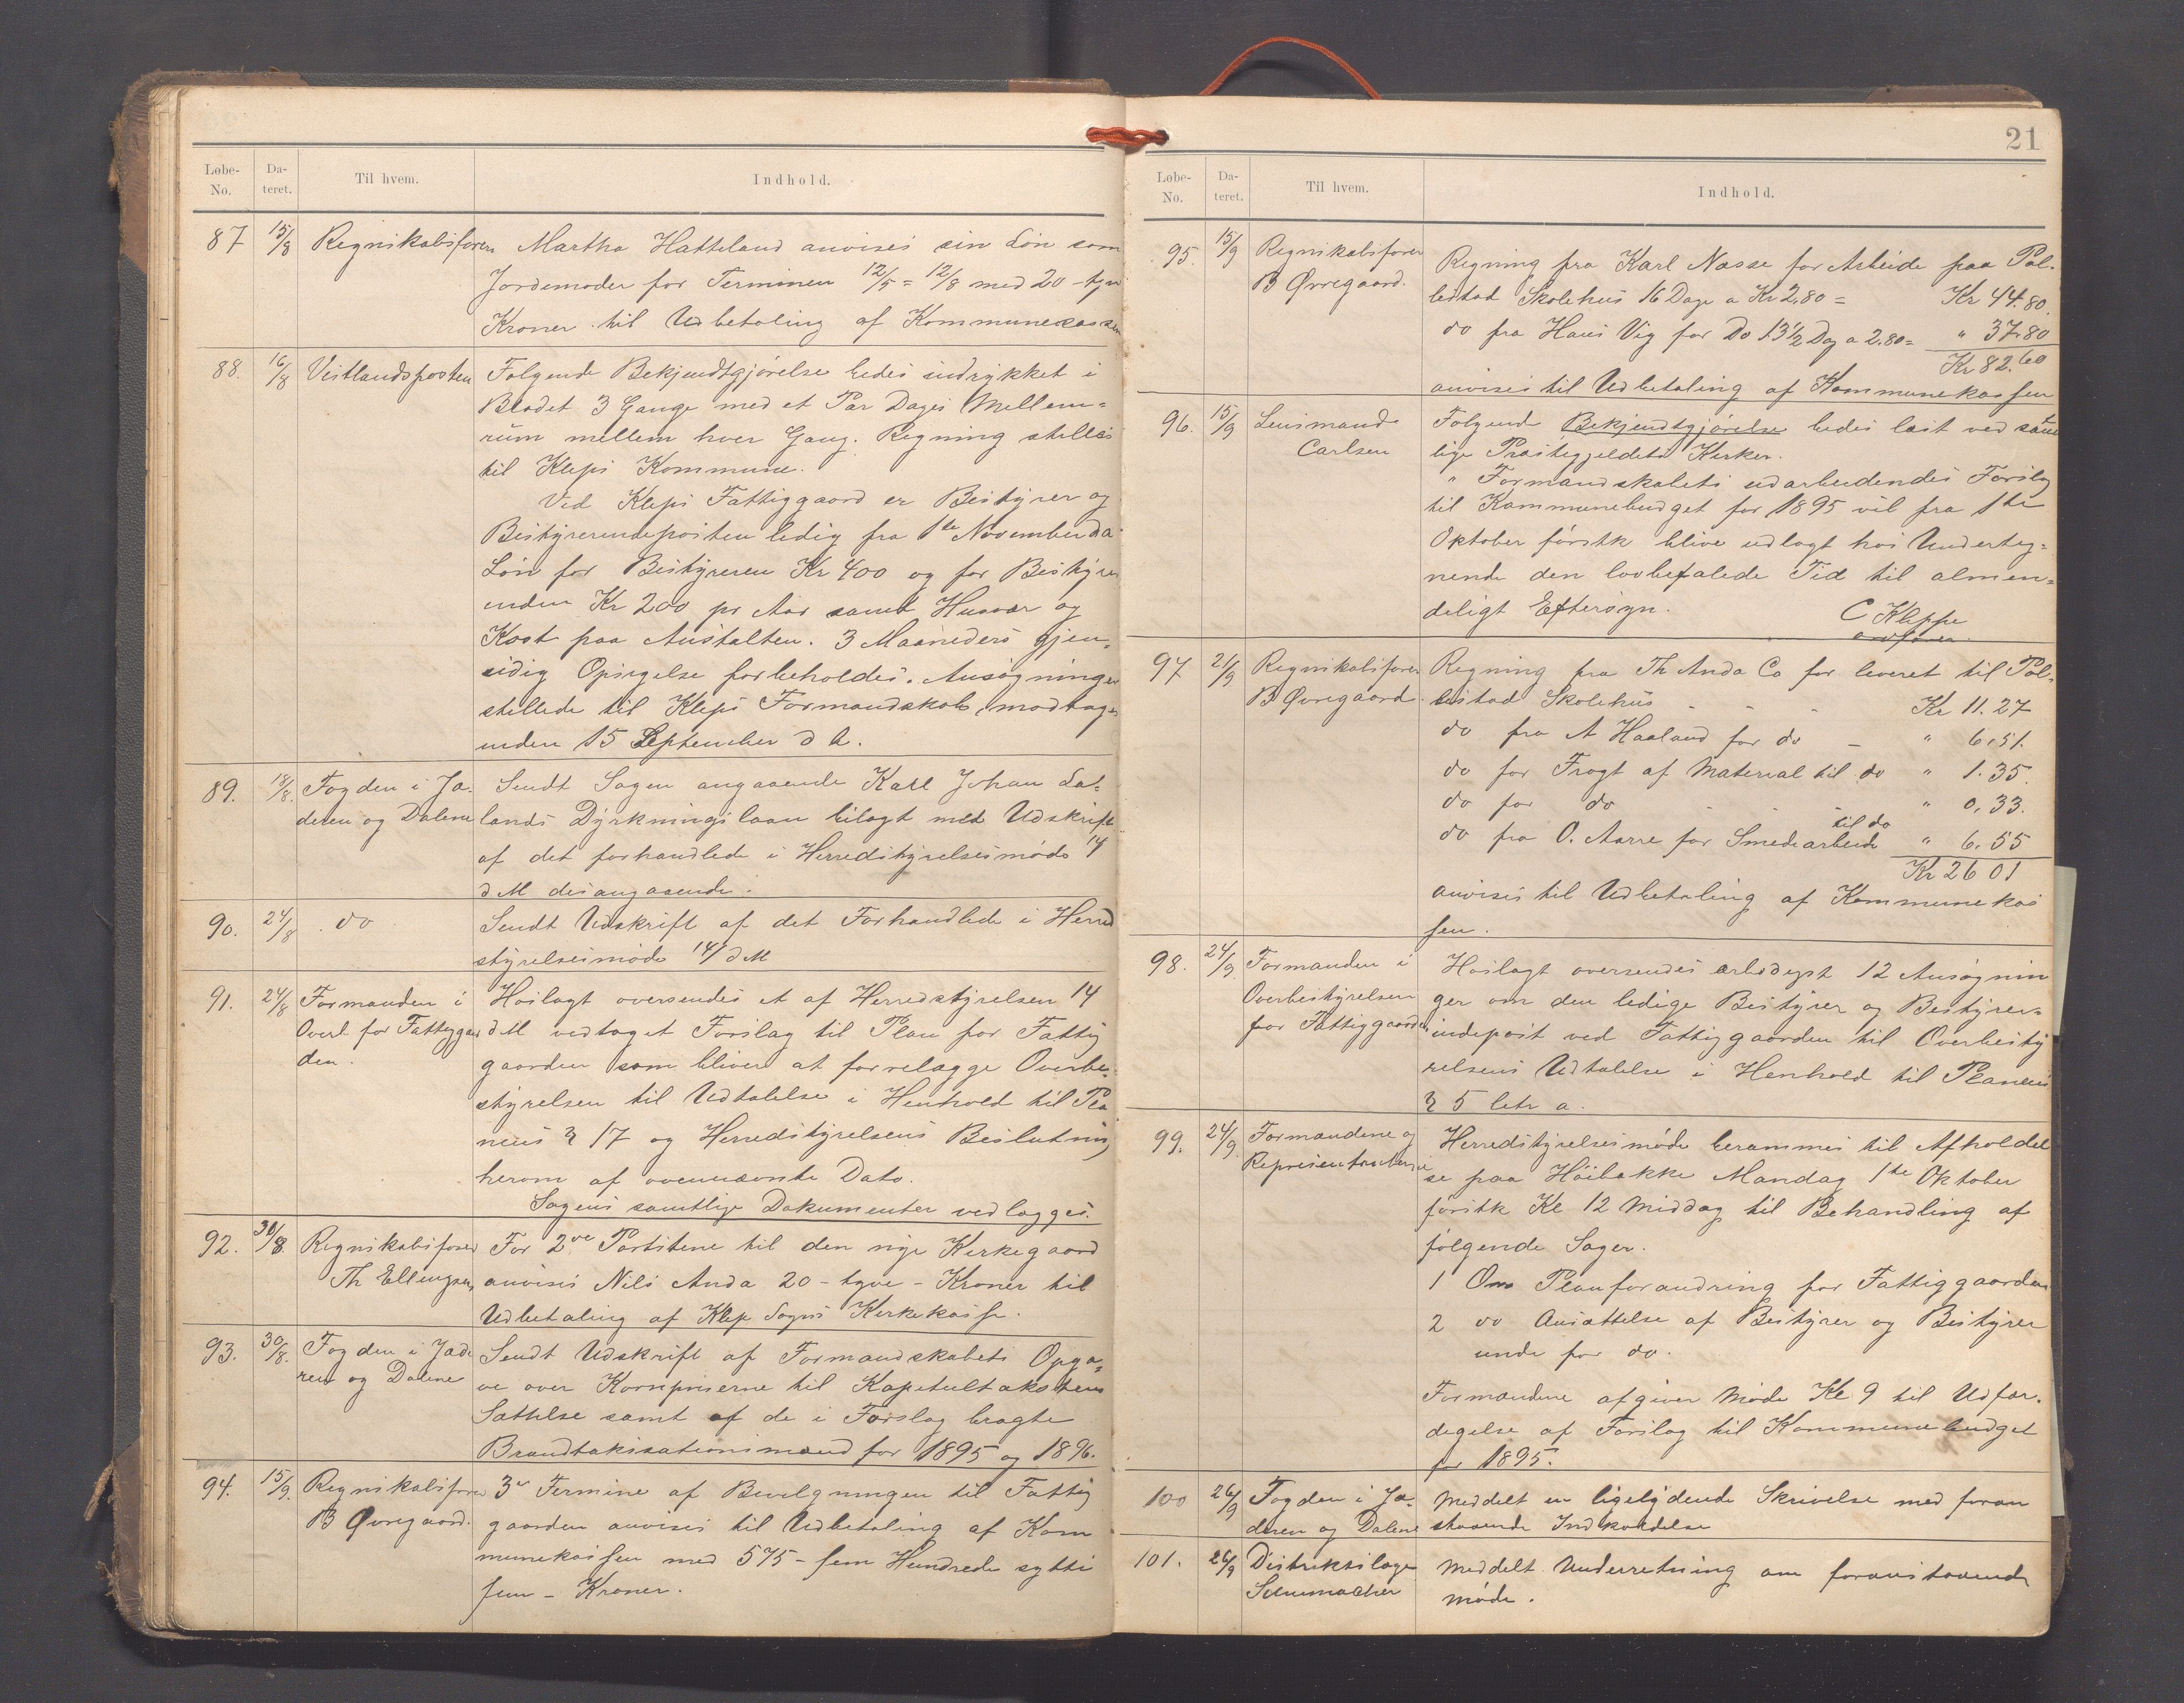 Løbe- No. Da- teret. Til hvem. Indhold.
87 15/8 Regnskabsføreren Martha Hatteland anvises sin Løn som
Jordemoder for Terminen 12/5 = 12/8 med 20 - tyve
Kroner til Udbetaling af Kommunekassen
88. 16/8 Vestlandsposten Følgende Bekjendtgjørelse bedes indrykket i
Bladet 3 Gange med et Par Dages Mellem=
rum mellem hver Gang. Regning stilles
til Kleps Kommune.
Ved Kleps Fattiggaard er Bestyrer og
Bestyrerindeposten ledig fra 1te November d a
Løn for Bestyreren Kr 400 og for Bestyrer
inden Kr 200 pr Aar samt Husvær og
Kost paa Anstalten. 3 Maaneders gjen=
sidig Opsigelse forbeholdes. Ansøgninger
stillede til Kleps Formandskab, modtages
inden 15 September d A.
89. 18/8. Fogden i Jæ- Sendt Sagen angaaende Karl Johan La=
deren og Dalene lands Dyrkningslaan bilagt med Udskrift
af det forhandlede i Herredstyrelsesmøde 14/
d M desangaaende.
90. 24/8 do Sendt Udskrift af det Forhandlede i Herred
styrelsesmøde 14/ d M
91. 24/8 Formanden i Hoslagt oversendes et af Herredstyrelsen 14
Overb. for Fattiggaar d M vedtaget Forslag til Plan for Fattig
den. gaarden som bliver at forrelægge Overbe=
styrelsen til Udtalelse i Henhold til Pla
nens § 17 og Herredstyrelsens Beslutning
herom af ovennævnte Dato.
Sagens samtlige Dokumenter vedlægges.
92. 30/8. Regnskabsfører For 2de Portstene til den nye Kirkegaard
Th Ellingsen anvises Nils Anda 20 - tyve - Kroner til
Udbetaling af Klep Sogns Kirkekasse.
93. 30/8. Fogden i Jæde Sendt Udskrift af Formandskabets Opga=
ren og Dalene ve over Kornpriserne til Kapitulstakstens
Sættelse samt af de i Forslag bragte
Brandtakstationsmænd for 1895 og 1896.
94. 15/9. Regnskabsfører 3e Termine af Bevilgningen til Fattig
B Øvregaard. gaarden anvises til Udbetaling af Kom
munekassen med 575 - fem Hundrede sytti
fem - Kroner.
21
Løbe- No. Da- teret. Til hvem. Indhold.
95. 15/9 Regnskabsfører Regning fra Karl Næsse for Arbeide paa Pol-
B Øvregaard. lestad Skolehus 16 Dage a Kr 2,80 = Kr 44.80.
do fra Hans Vig for Do 13 1/2 Dag a 2.80 = " 37.80
Kr 82.60
anvises til Udbetaling af Kommunekassen
96. 15/9 Lensmand Følgende Bekjendtgjørelse bedes læst ved samt
Carlsen lige Præstegjeldets Kirker.
" Formandskabets udarbeidendes Forslag
til Kommunebudget for 1895 vil fra 1te
Oktober førstk blive udlagt hos Underteg=
nende den lovbefalede Tid til almen=
deligt Eftersyn. C Kleppe
ordfører.
97 21/9 Regnskabsfører Regning fra Th Anda Co for leveret til Pol=
B Øvregaard. lestad Skolehus - - - Kr 11.27
do fra A Haaland for do - " 6,51.
do for Fragt af Material til do " 1.35.
do for do - - - " 0,33.
do fra O. Aarre for Smedearbeide til do " 6,55
Kr 26 01
anvises til Udbetaling af Kommunekas
sen.
98. 24/9. Formanden i Hoslagt oversendes ærbødigst 12 Ansøgnin
Overbestyrelsen ger om den ledige Bestyrer og Bestyrer=
for Fattiggaarden indepost ved Fattiggaarden til Overbesty
relsens Udtalelse i Henhold til Planens
§ 5 litr a.
99. 24/9. Formændene og Herredstyrelsesmøde berammes til Afholdel
Repræsentanterne se paa Høibakke Mandag 1te Oktober
førstk Kl 12 Middag til Behandling af
følgende Sager.
1 Om Planforandring for Fattiggaarden
2 do Ansættelse af Bestyrer og Bestyrer
inde for do.
Formændene afgiver Møde Kl 9 til Udfær-
digelse af Forslag til Kommunebudget
for 1895.
100 26/9 Fogden i Jæ- Meddelt en ligelydende Skrivelse med foran
deren og Dalene staaende Indkaldelse
101. 26/9 Distriktslæge Meddelt Underretning om foranstaaende
Schumacher møde.